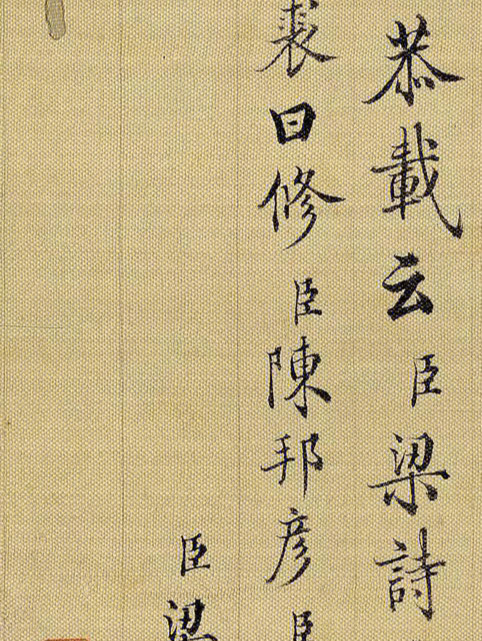 恭載云臣梁詩
裘曰修臣陳邦彥臣
臣梁